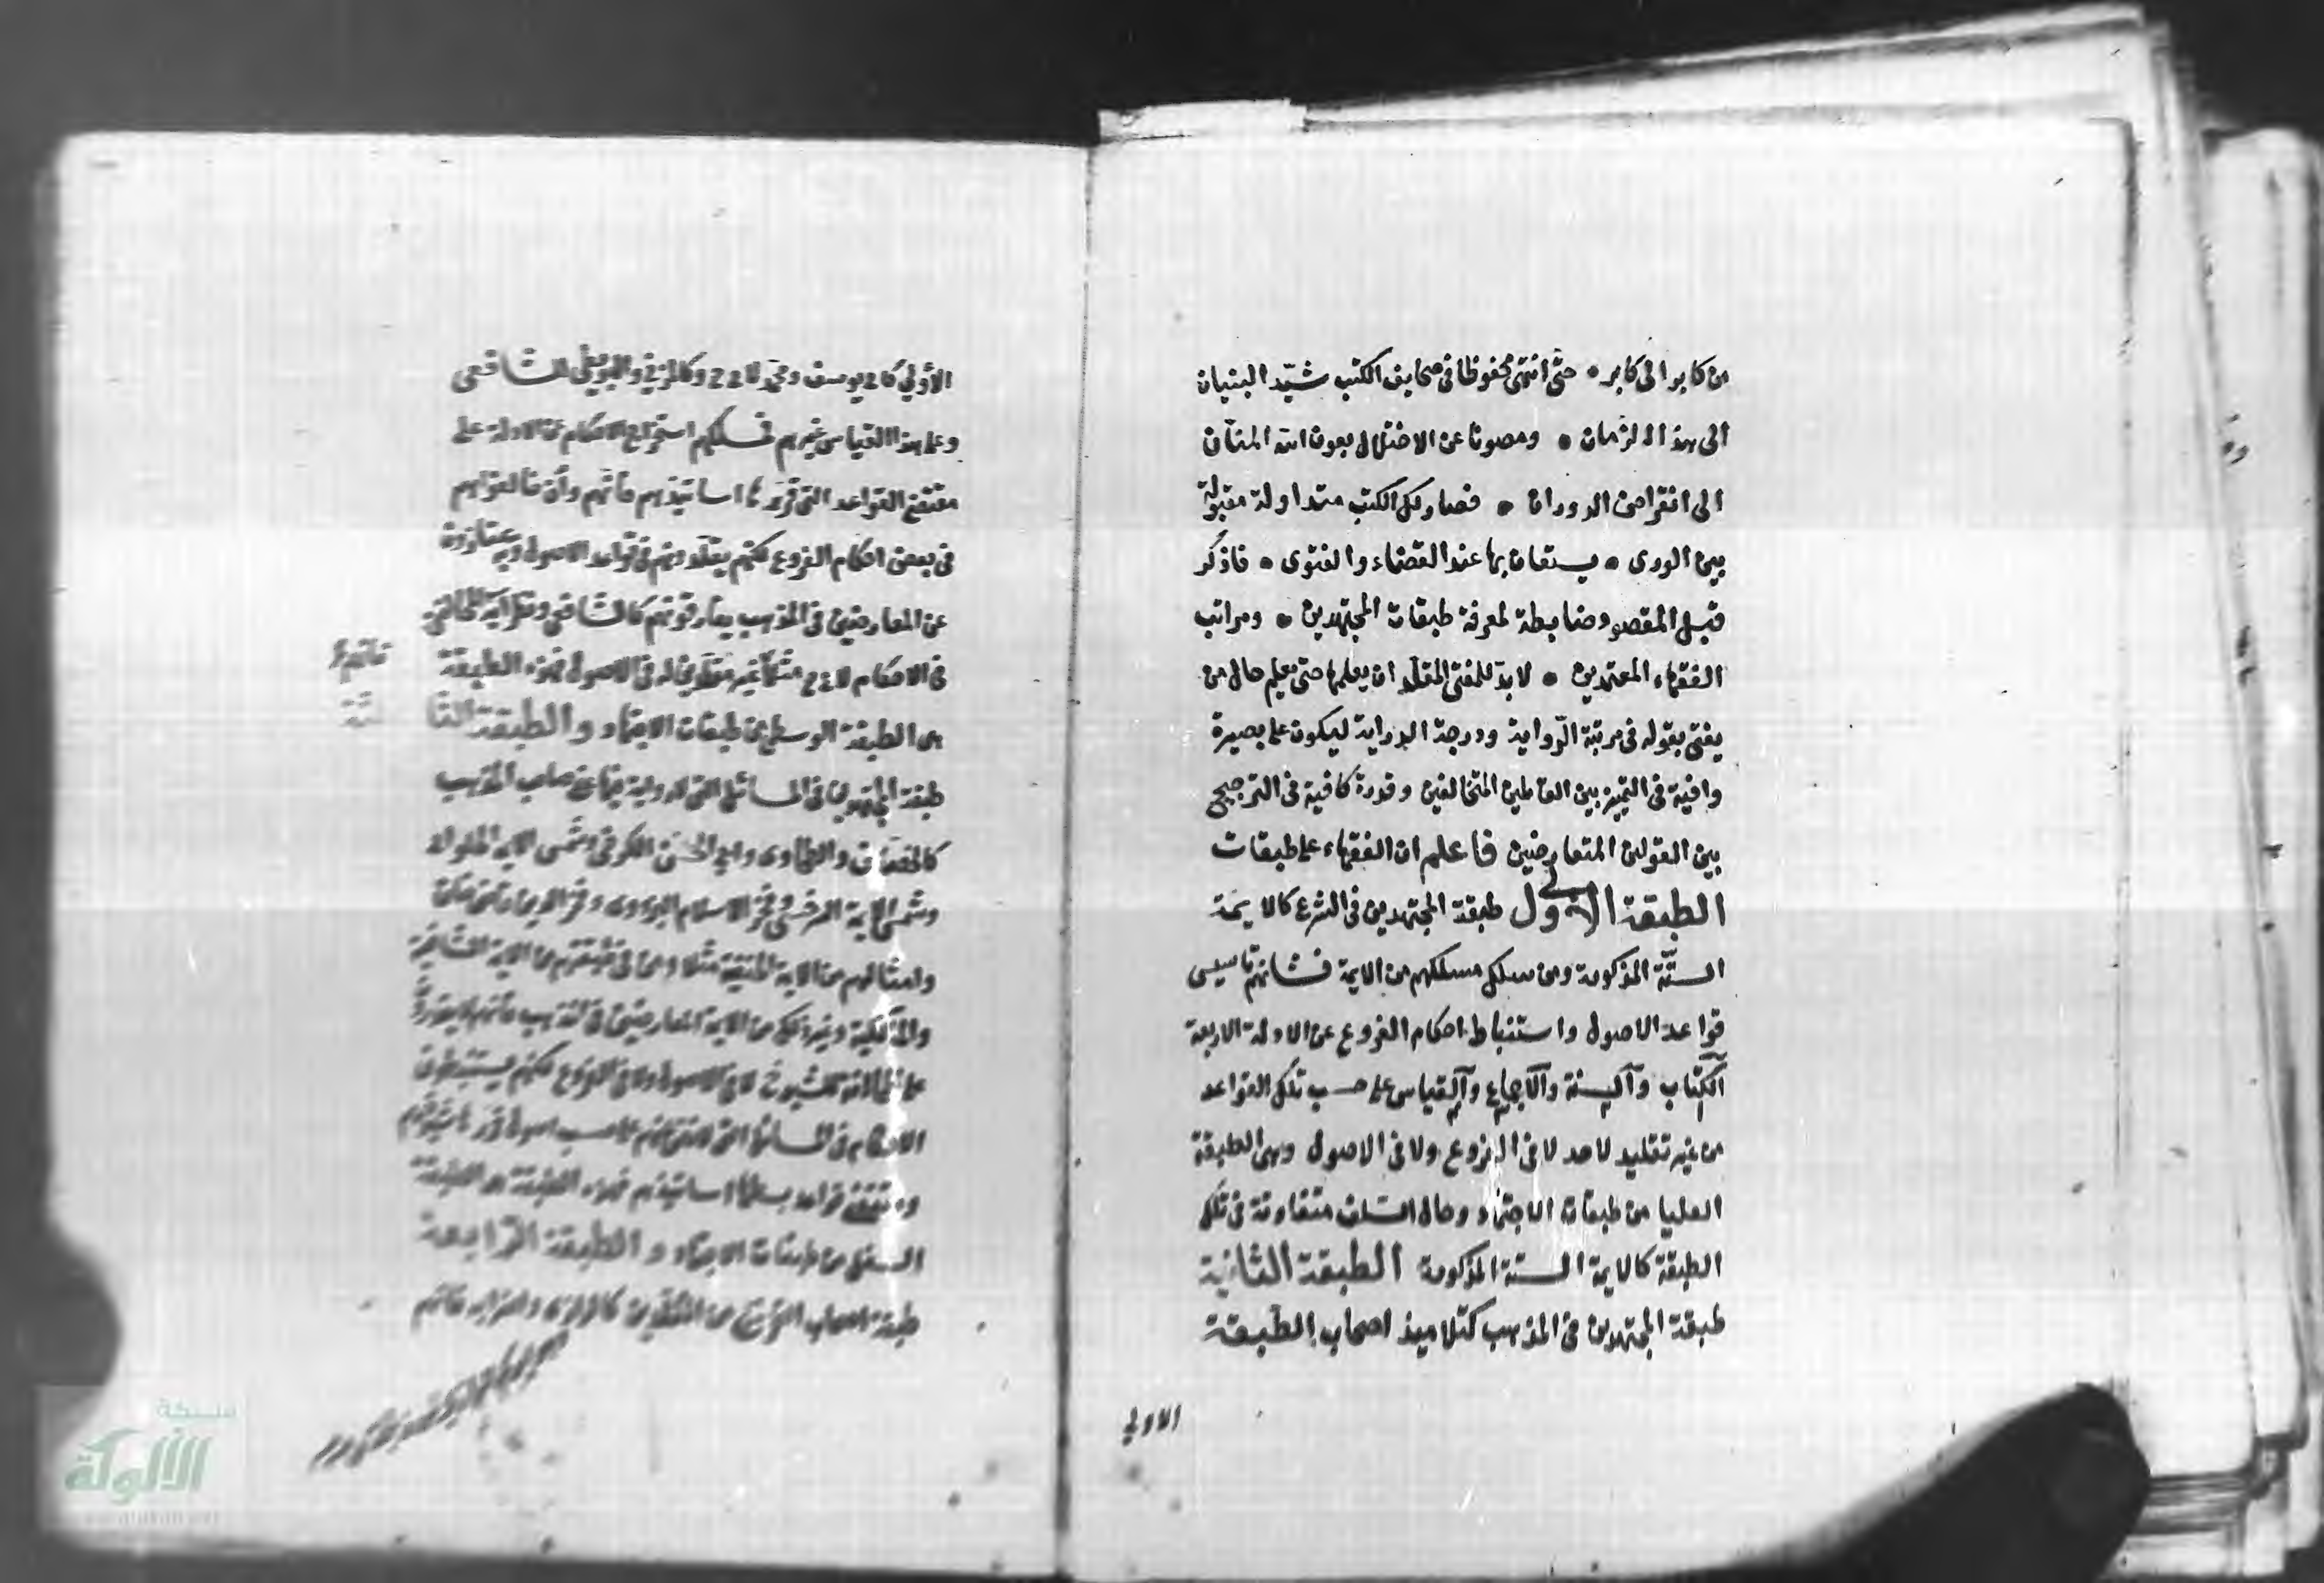 من كابر الى كابر • حتى انتهى محفوظا فى صحايف الكتب شيّد البنيان
الى هذا الزمان • ومصونا عن الاختلال بعون الله المنّان
الى انقراض الدوران • فصار كل الكتب متداولة مقبولة
بين الورى • يستعان بها عند القضاء والفتوى • فاذكر
قبل المقصود ضابطة لمعرفة طبقات المجتهدين • ومراتب
الفقهاء المعتمدين • لا بد للمفتى المقلّد ان يعلمها حتى يعلم حال من
يفتى بقوله فى مرتبة الرّواية ودرجة الدراية ليكون على بصيرة
وافية فى التمييز بين القائلين المتخالفين وقدرة كافية فى الترجيح
بين القولين المتعارضين فاعلم ان الفقهاء على طبقات
الطبقة الاولى طبقة المجتهدين فى الشرع كالايمة
الستّة المذكورة ومن سلك مسلكهم من الايمة فشانهم تاسيس
قواعد الاصول واستنباط احكام الفروع عن الادلة الاربعة
الكتاب والسنة والاجماع والقياس على حسب تلك القواعد
من غير تقليد لاحد لا فى الفروع ولا فى الاصول وهى الطبقة
العليا من طبقات الاجتهاد وحال السلف متفاوتة فى تلك
الطبقة كالايمة الستة المذكورة الطبقة الثانية
طبقة المجتهدين فى المذهب كتلاميذ اصحاب الطبقة
الاولى
الأولى كابى يوسف ومحمد لابى ح وكالمزنى والبويطى للشافعى
وعلى هذا القياس غيرهم فمسلكهم استخراج الاحكام عن الادلة على
مقتضى القواعد التى قررها اساتيذهم فانهم وان خالفواهم
فى بعض احكام الفروع لكنهم يقلدونهم فى قواعد الاصول وبه يمتازون
عن المعارضين فى المذهب يفارقونهم كالشافعى ونظرائه المخالفين
فى الاحكام لابى ح مثلا غير مقلدين له فى الاصول فهذه الطبقة
هى الطبقة الوسطى من طبقات الاجتهاد والطبقة الثا
لثة
طبقة المجتهدين فى المسائل التى لا رواية فيها عن صاحب المذهب
كالخصاف والطحاوى وابى الحسن الكرخى وشمس الايمة الحلوانى
وشمس الايمة السرخسى وفخر الاسلام البزدوى وفخر الدين قاضى خان
وامثالهم من الايمة الحنفية مثلا ومن فى طبقتهم من الايمة الشافعية
والمالكية وغير ذلك من الايمة المعارضين فى المذهب فانهم لا يقدرون
على المخالفة للشيوخ لا فى الاصول ولا فى الفروع لكنهم يستنبطون
الاحكام فى المسائل التى لا نص عنهم على حسب اصول قررها شيوخهم
ومقتضى قواعد بسطها اساتيذهم فهذه الطبقة هى الطبقة
السفلى من طبقات الاجتهاد والطبقة الرّابعة
طبقة اصحاب التخريج من المقلدين كالرازى واضرابه فانهم